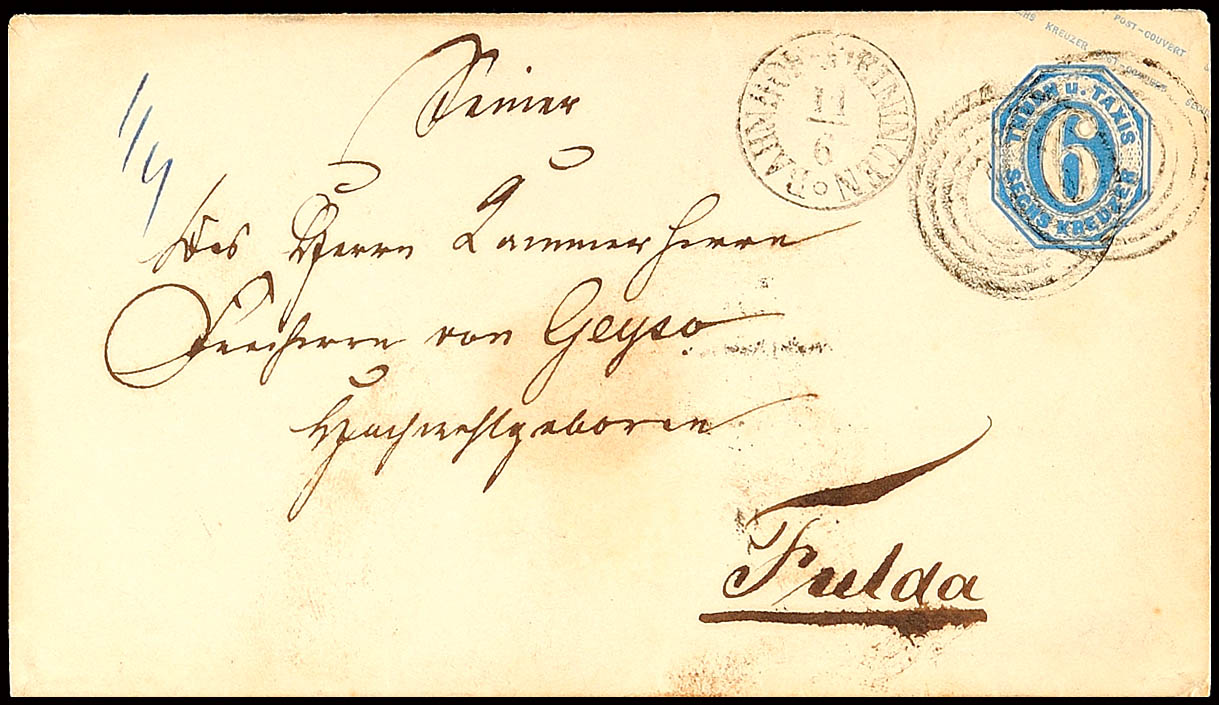 1/4
Seiner
Des Herrn Kammerherrn
Freiherrn von Geyso
Hochwohlgeboren
Fulda
BAHNHOF MEININGEN
11
6
THURN u. TAXIS
6
SECHS KREUZER
KREUZER POST-COUVERT